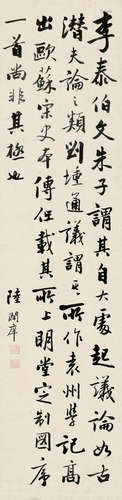 李泰伯文朱子謂其自大處起議論如古
潛夫論之類劉壎通議謂其所作袁州學記高
出歐蘇宋史本傳任載其所上明堂定制圖序
一首尚非其極也
陸潤庠